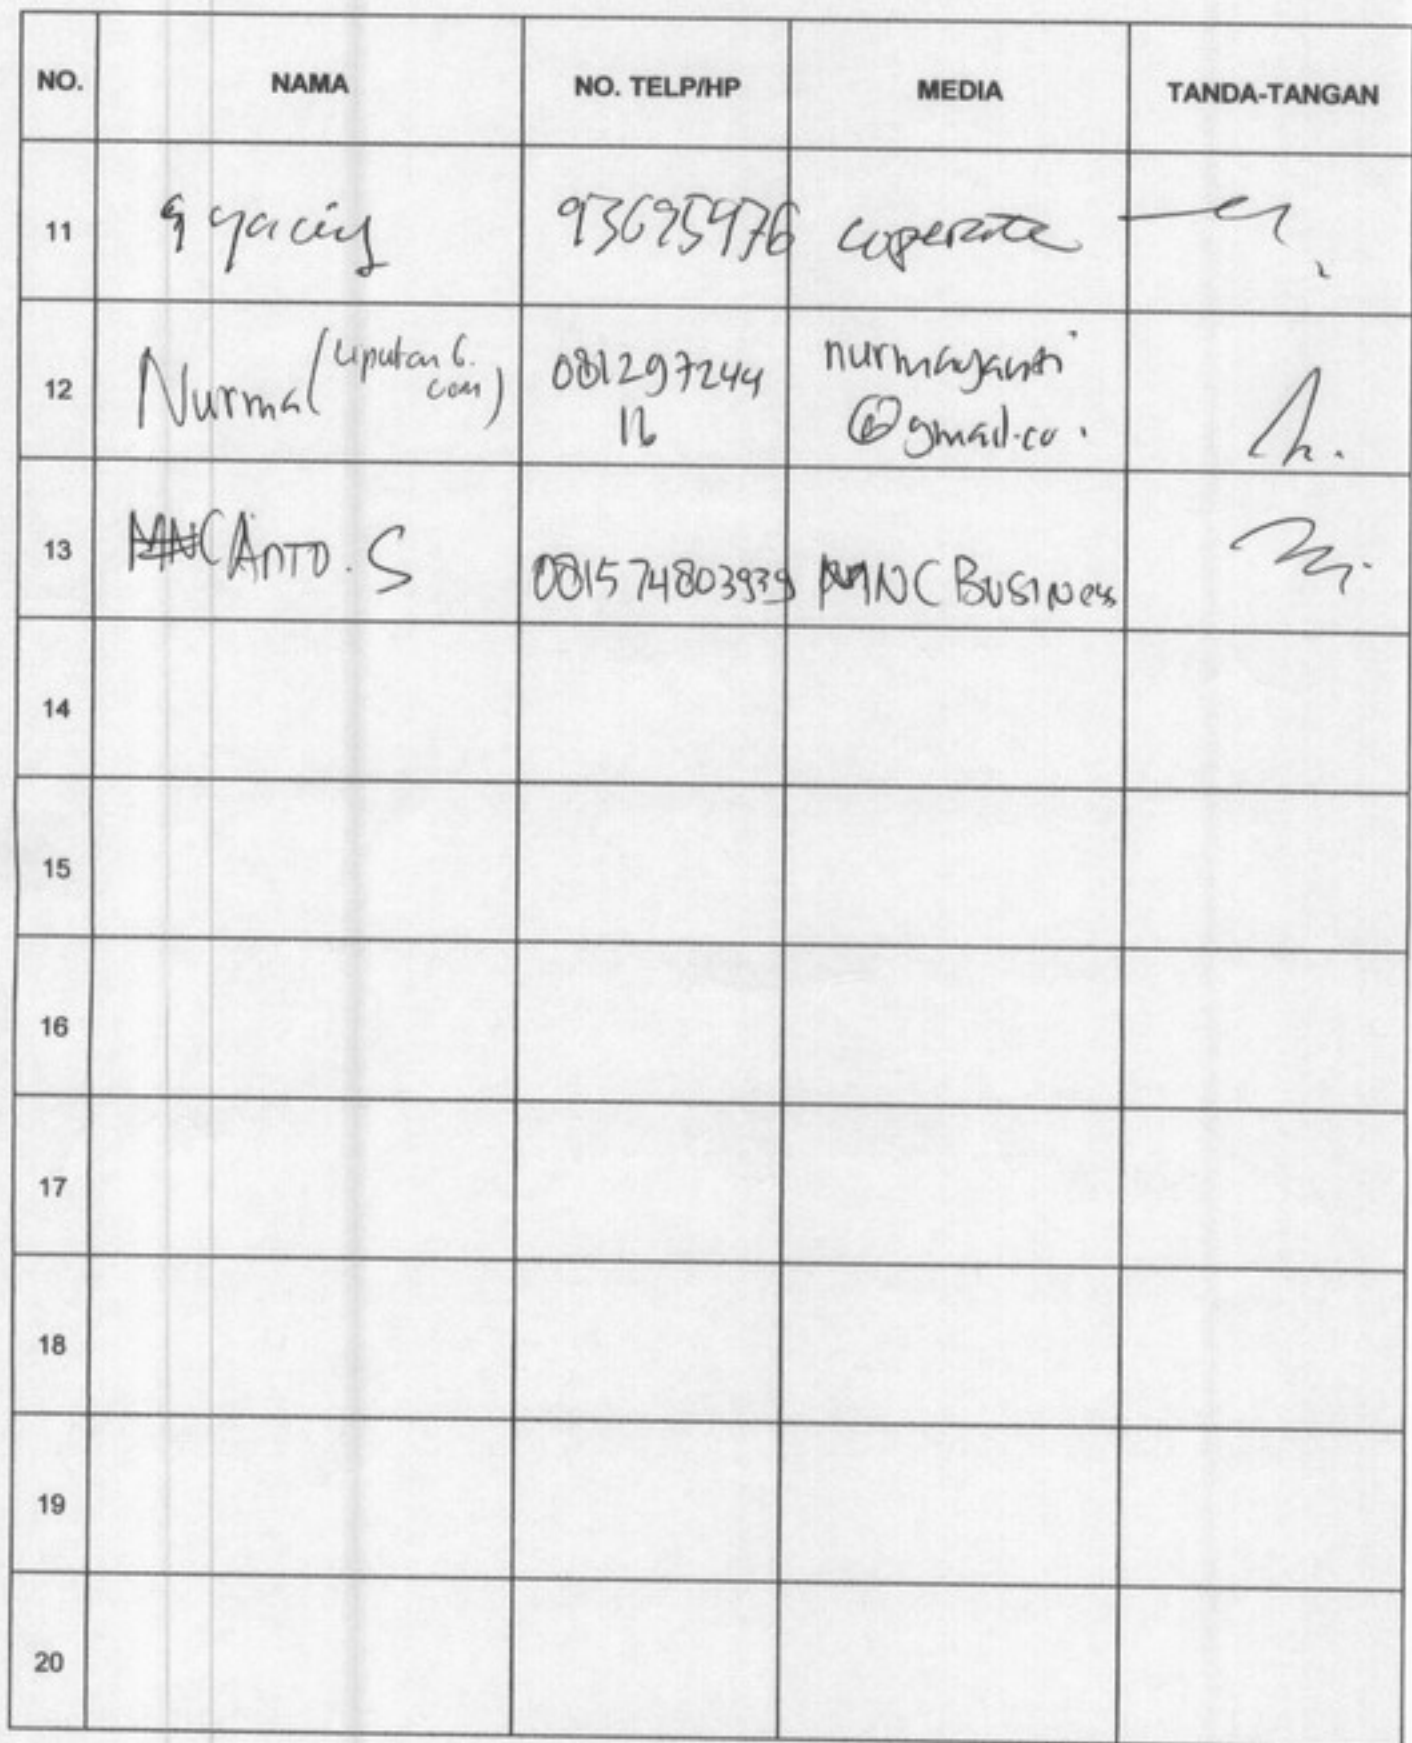 NO. NAMA NO. TELP/HP MEDIA TANDA-TANGAN
11 93695976
12 Nurma (Liputan 6. 081297244 nurmayanti
com) 12 @gmail.co.
13 MNC Anto. S 081574803939 MNC Business
14
15
16
17
18
19
20